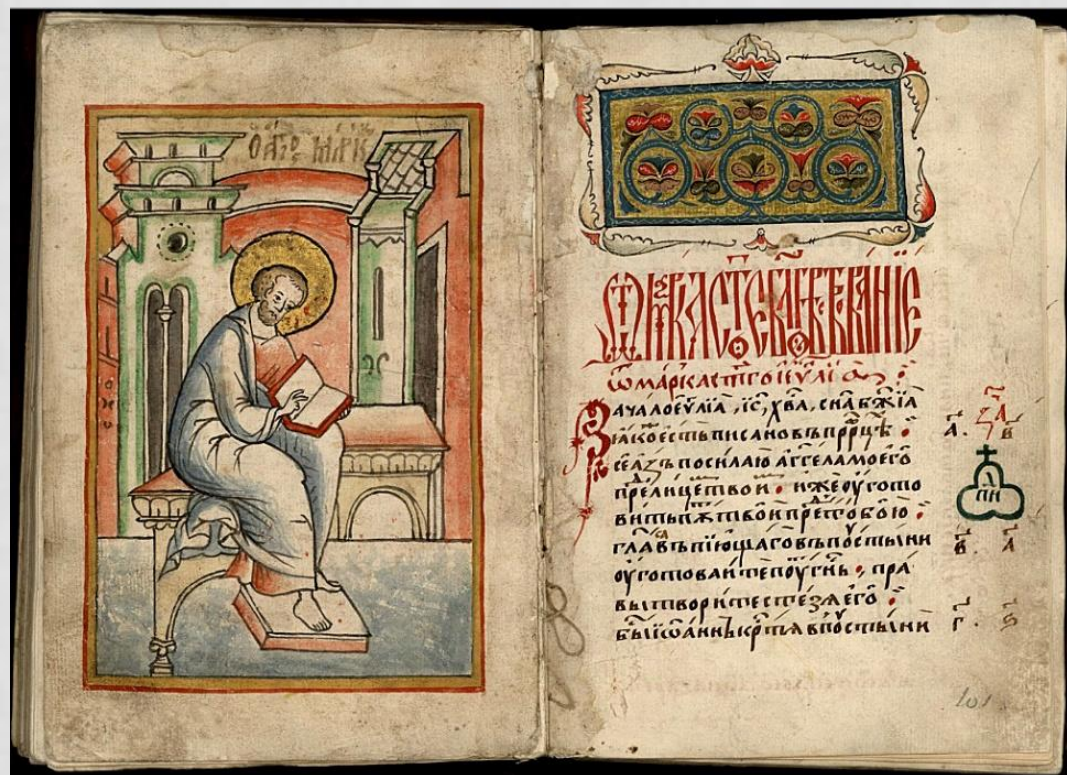 Ѿ МАРКА СТ҃Е БЛ҃ГОВѢСТВОВАНІЕ
Ѿ МАРКА СТ҃ГО ЕУ҃ЛІА
ЗАЧАЛО ЕУ҃ЛІА, ІС҃, ХВ҃А, СН҃А БЖ҃ІА
ꙗкоесть писано въ прⷪ҇рцѣ
се азъ посилаю аггела моего
прⷣе лицетвои. иже оугото
витъ пѫть твои прⷣе тобою
глⷭ҇а въпіющаго въ поустыни
оуготоваите поуть гнь, пра
вы творите стезѧ его
бы іѡаннь крⷭ҇тѧ в поустыни
а҃. в҃
пн
в҃. а҃
г҃. ѕ҃
101